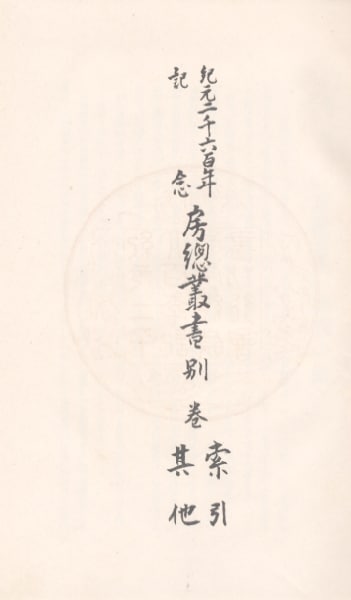 紀元二千六百年
記念
房總叢書別巻
索引
其他